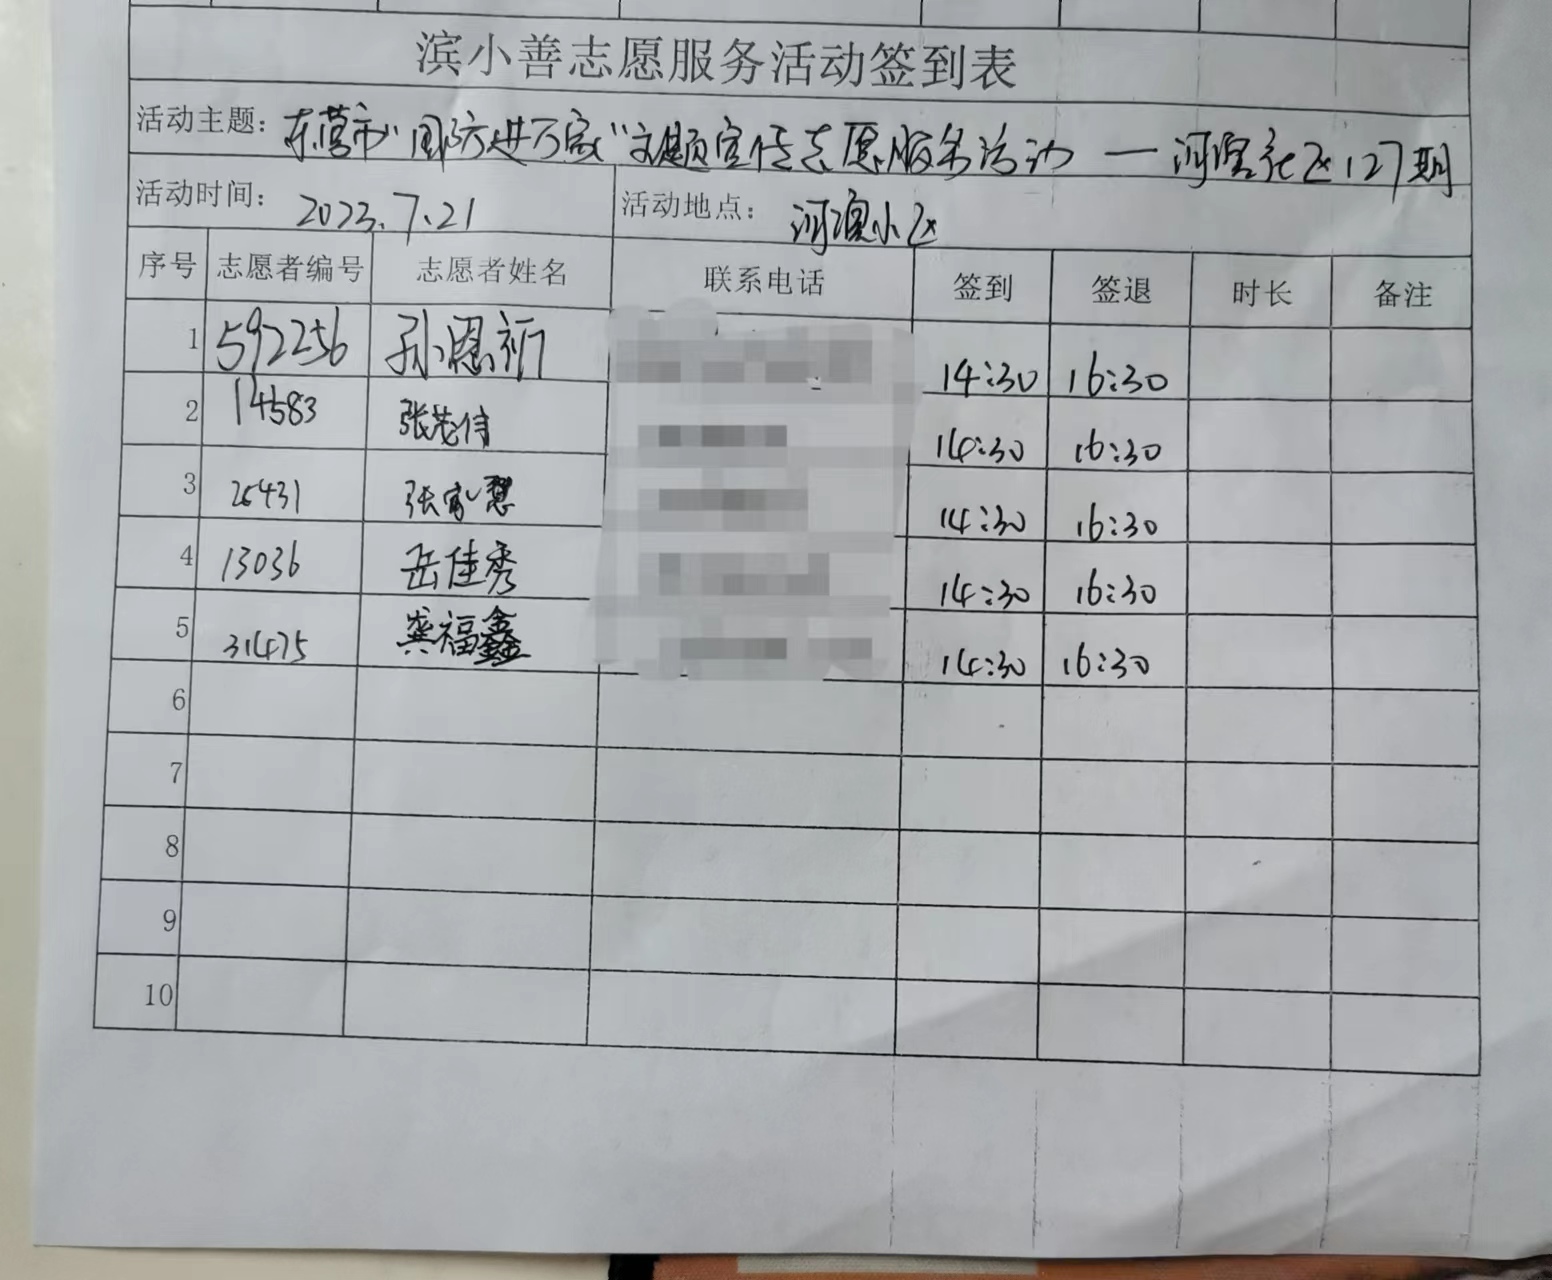 滨小善志愿服务活动签到表
活动主题: 东营市"国防进万家"主题宣传志愿服务活动 — 河滨社区127期
活动时间: 2023.7.21 活动地点: 河滨小区
序号 志愿者编号 志愿者姓名 联系电话 签到 签退 时长 备注
1 592256 孙恩祈 14:30 16:30
2 14583 张茂倍 14:30 16:30
3 26431 张家慧 14:30 16:30
4 13036 岳佳秀 14:30 16:30
5 31475 龚福鑫 14:30 16:30
6
7
8
9
10